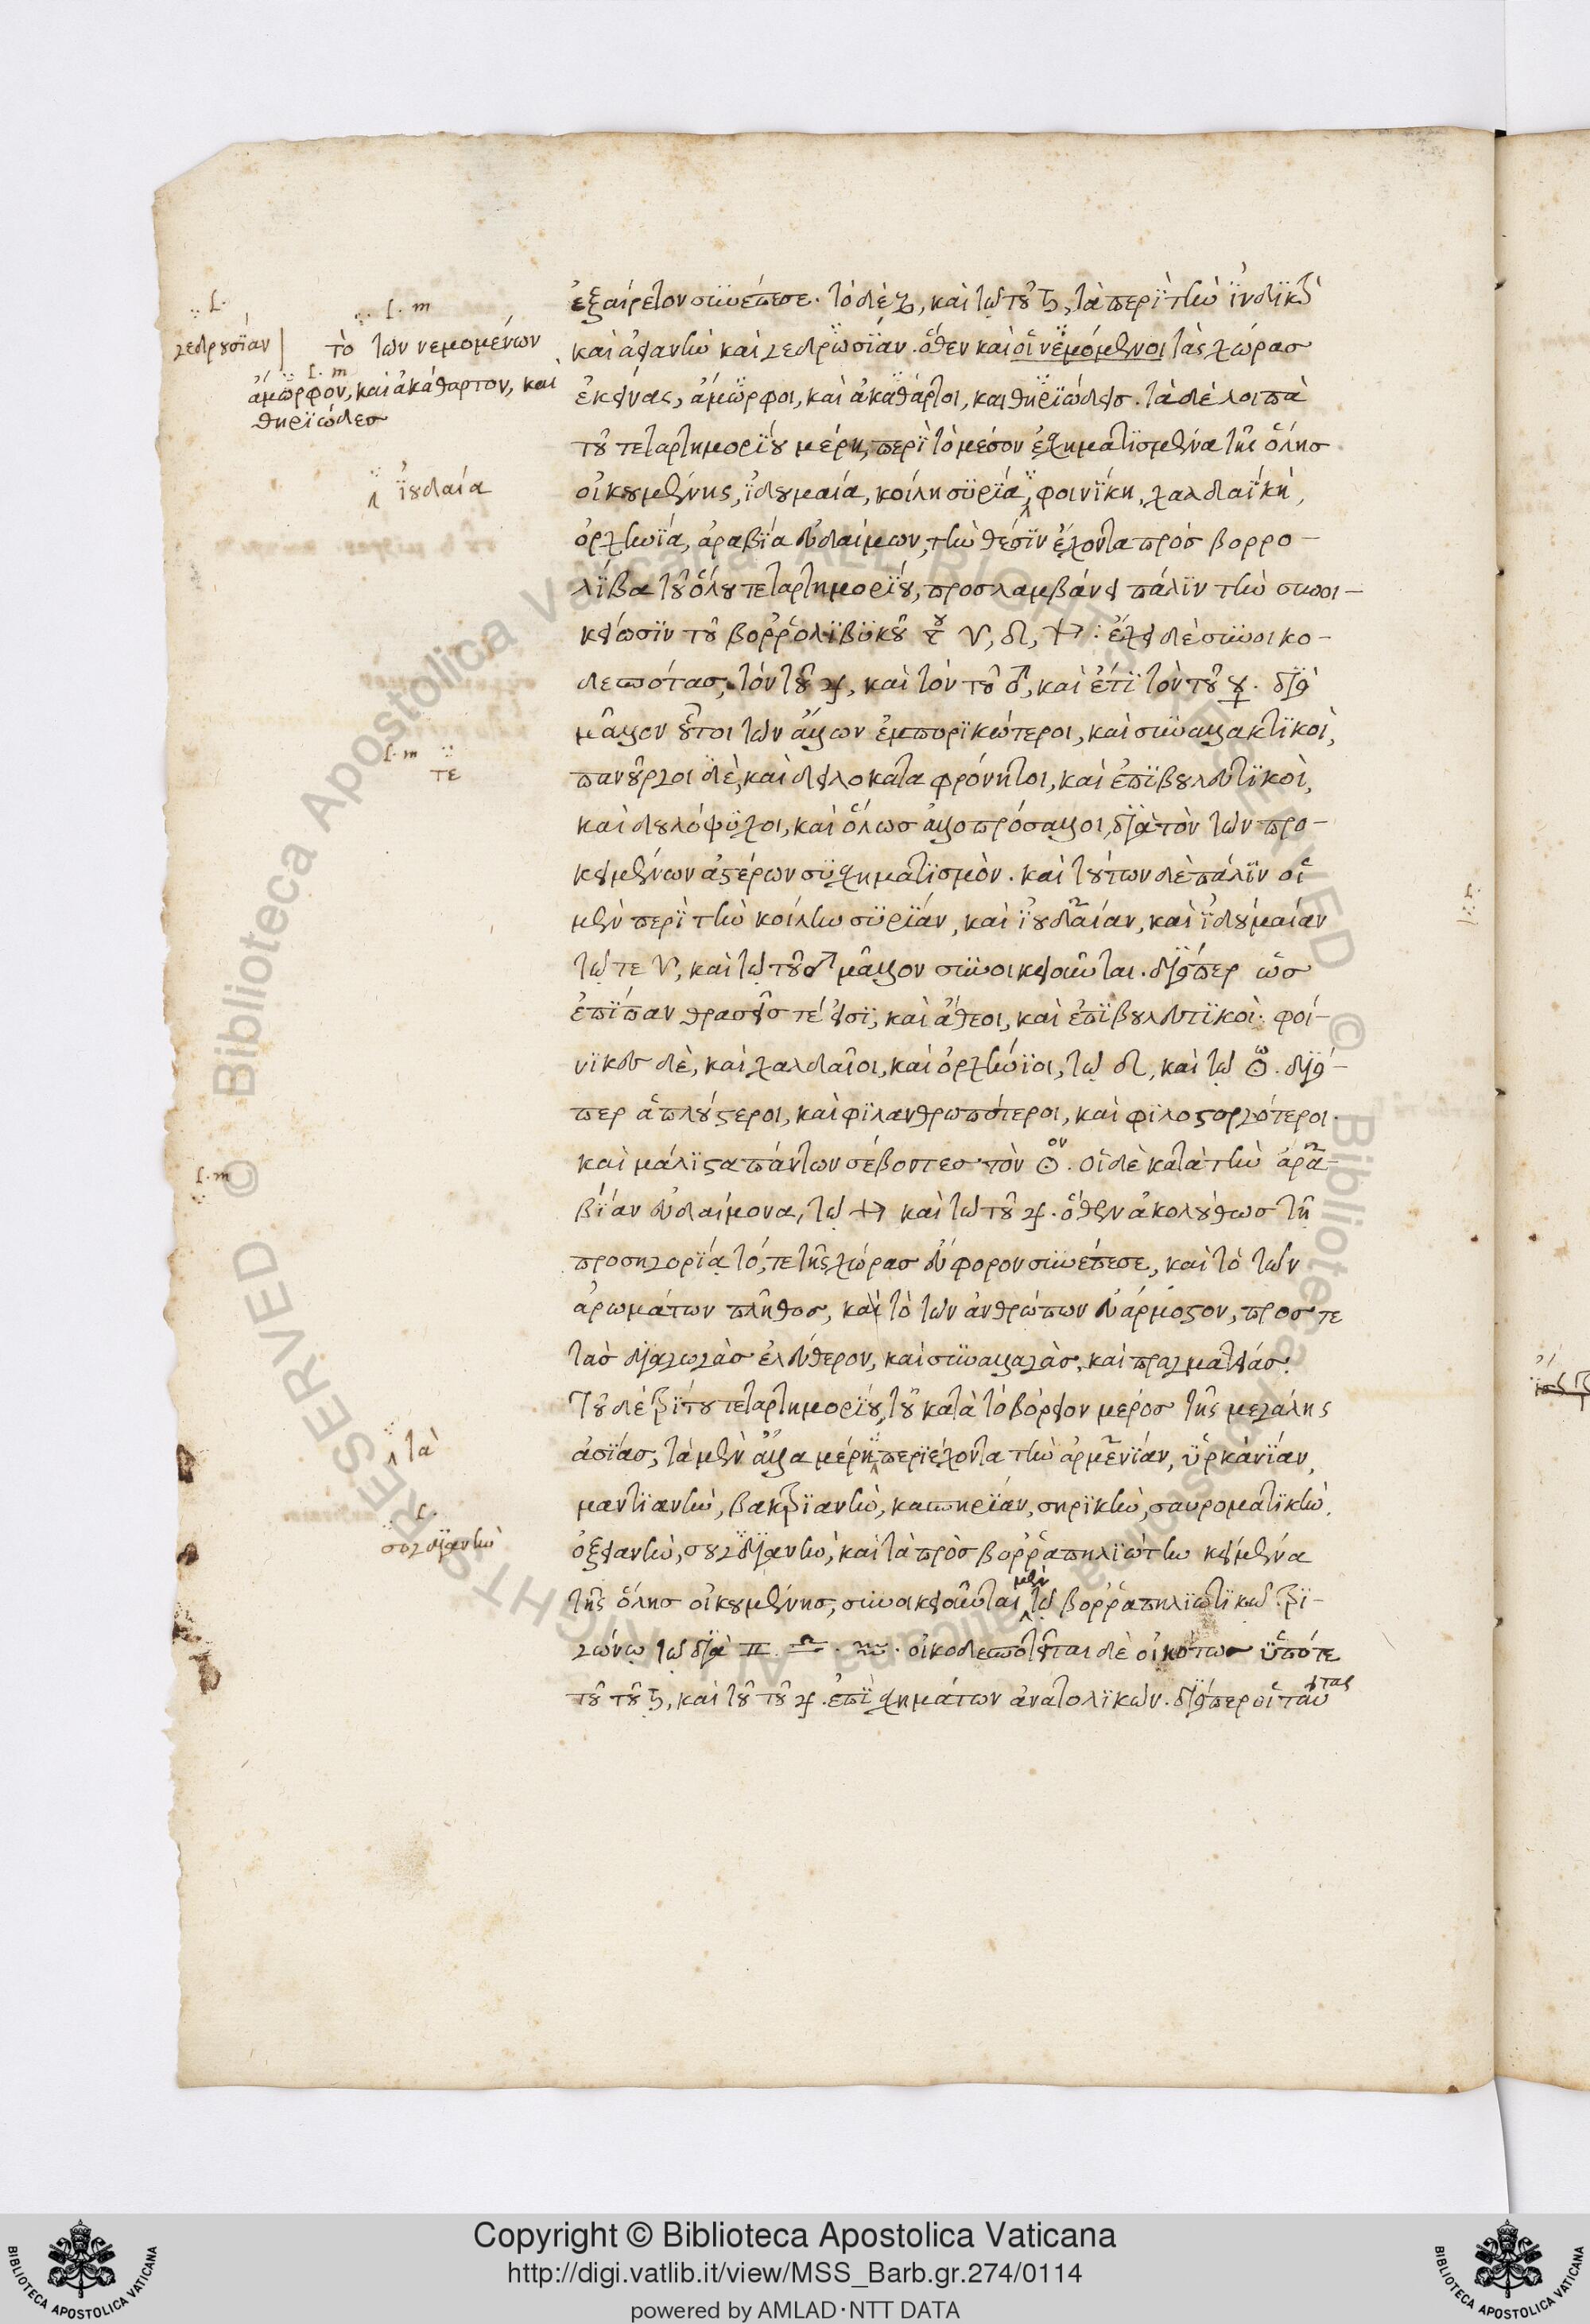 ἐξαίρετον συνέπεσε. τὸ δὲ ♑, καὶ τῷ τοῦ ♄, τὰ περὶ τὴν ἰνδικὴν
καὶ ἀρειανὴν καὶ γεδρωσίαν. ὅθεν καὶ οἱ νεμόμενοι τὰς χώρας
ἐκείνας, ἄμορφοι, καὶ ἀκάθαρτοι, καὶ θηριώδεις. τὰ δὲ λοιπὰ
τοῦ τεταρτημορίου μέρη, περὶ τὸ μέσον ἐσχηματισμένα τῆς ὅλης
οἰκουμένης, ἰδουμαία, κοίλη συρία, φοινίκη, χαλδαϊκὴ,
ὀρχηνία, ἀραβία εὐδαίμων, τὴν θέσιν ἔχοντα πρὸς βορρο-
λίβα τοῦ ὅλου τεταρτημορίου, προσλαμβάνει πάλιν τὴν συνοι-
κείωσιν τοῦ βορρολιβυκοῦ ♈, ♌, ♐: ἔχει δὲ συνοικο-
δεσπότας, τόν τοῦ ♃, καὶ τὸν τοῦ ♂, καὶ ἔτι τὸν τοῦ ☿. διὸ
μᾶλλον οὗτοι τῶν ἄλλων ἐμπορικώτεροι, καὶ συναλλακτικοὶ,
πανοῦργοι δὲ, καὶ δειλοκαταφρόνητοι, καὶ ἐπιβουλευτικοὶ,
καὶ δουλόψυχοι, καὶ ὅλως ἀλλοπρόσαλλοι, διὰ τὸν τῶν προ-
κειμένων ἀστέρων συσχηματισμὸν. καὶ τούτων δὲ πάλιν οἱ
μὲν περὶ τὴν κοίλην συρίαν, καὶ ἰουδαίαν, καὶ ἰδουμαίαν
τῷ τε ♈, καὶ τῷ τοῦ ♂ μᾶλλον συνοικειοῦνται. διόπερ ὡς
ἐπίπαν θρασεῖς τέ εἰσι, καὶ ἄθεοι, καὶ ἐπιβουλευτικοὶ. φοί-
νικες δὲ, καὶ χαλδαῖοι, καὶ ὀρχήνιοι, τῷ ♌, καὶ τῷ ☉. διό-
περ ἁπλούστεροι, καὶ φιλανθρωπότεροι, καὶ φιλοστοργότεροι.
καὶ μάλιστα πάντων σέβοντες τὸν ☉. οἱ δὲ κατὰ τὴν ἀρα-
βίαν εὐδαίμονα, τῷ ♐ καὶ τῷ τοῦ ♃. ὅθεν ἀκολούθως τῇ
προσηγορίᾳ τό, τε τῆς χώρας εὔφορον συνέπεσε, καὶ τὸ τῶν
ἀρωμάτων πλῆθος, καὶ τὸ τῶν ἀνθρώπων εὐάρμοστον, προς τε
τὰς διαγωγὰς ἐλεύθερον, καὶ συναλλαγὰς, καὶ πραγματείας.
Τοῦ δὲ τρίτου τεταρτημορίου, τοῦ κατὰ τὸ βόρειον μέρος τῆς μεγάλης
ἀσίας, τὰ μὲν ἄλλα μέρη περιέχοντα τὴν ἀρμενίαν, ὑρκανίαν,
μαντιανὴν, βακτριανὴν, κασπηρίαν, σηρικὴν, σαυροματικὴν.
ὀξειανὴν, σουγδιανὴν, καὶ τὰ πρὸς βορραπηλιώτην κείμενα
τῆς ὅλης οἰκουμένης, συνοικειοῦνται μὲν τῷ βορραπηλιωτικῷ τρι-
γώνῳ τῷ διὰ ♊. ♎. ♒. οἰκοδεσποτεῖται δὲ εἰκότως ὑπό τε
τοῦ τοῦ ♄, καὶ τοῦ τοῦ ♃. ἐπὶ σχημάτων ἀνατολικῶν. διόπερ οἱ ταύτας
γεδρουσίαν
τὸ τῶν νεμομένων
ἄμορφον, καὶ ἀκάθαρτον, και
θηριώδες
ἰουδαία
τε
τὰ
σογδιανὴν
Copyright © Biblioteca Apostolica Vaticana
http://digi.vatlib.it/view/MSS_Barb.gr.274/0114
powered by AMLAD·NTT DATA